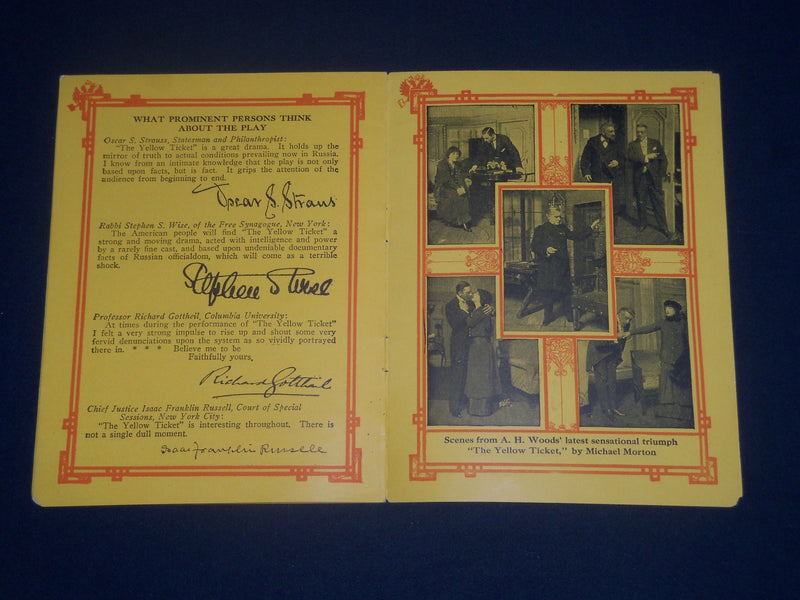 WHAT PROMINENT PERSONS THINK
ABOUT THE PLAY
Oscar S. Strauss, Statesman and Philanthropist:
"The Yellow Ticket" is a great drama. It holds up the
mirror of truth to actual conditions prevailing now in Russia.
I know from an intimate knowledge that the play is not only
based upon facts, but is fact. It grips the attention of the
audience from beginning to end.
Oscar S. Straus
Rabbi Stephen S. Wise, of the Free Synagogue, New York:
The American people will find "The Yellow Ticket" a
strong and moving drama, acted with intelligence and power
by a rarely fine cast, and based upon undeniable documentary
facts of Russian officialdom, which will come as a terrible
shock.
Stephen S Wise
Professor Richard Gottheil, Columbia University:
At times during the performance of "The Yellow Ticket"
I felt a very strong impulse to rise up and shout some very
fervid denunciations upon the system as so vividly portrayed
there in. * * * Believe me to be
Faithfully yours,
Richard Gottheil
Chief Justice Isaac Franklin Russell, Court of Special
Sessions, New York City:
"The Yellow Ticket" is interesting throughout. There is
not a single dull moment.
Isaac Franklin Russell
Scenes from A. H. Woods' latest sensational triumph
"The Yellow Ticket," by Michael Morton